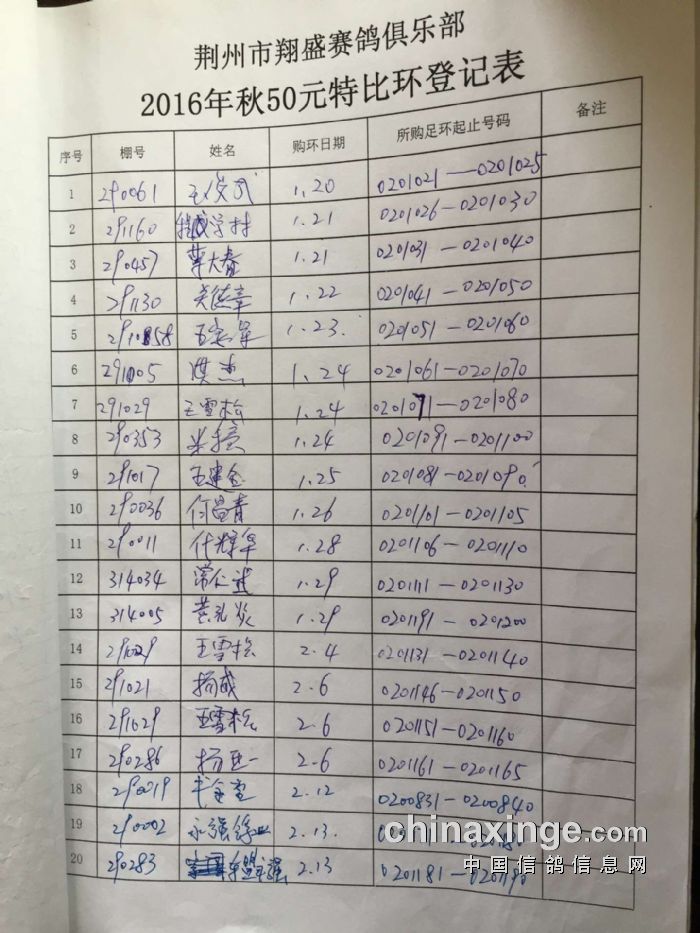 荆州市翔盛赛鸽俱乐部
2016年秋50元特比环登记表
序号 棚号 姓名 购环日期 所购足环起止号码 备注
1 290061 1.20 0201021—0201025
2 291160 1.21 0201026—0201030
3 290457 1.21 0201031—0201040
4 291130 1.22 0201041—0201050
5 1.23. 0201051—0201060
6 291005 1.24 0201061—0201070
7 291029 王雪松 1.24 0201071—0201080
8 290353 1.24 0201091—0201100
9 291017 王建金 1.25 0201081—0201090
10 290036 何昌青 1.26 0201101—0201105
11 290011 1.28 0201106—0201110
12 314034 1.29 0201111—0201130
13 314005 1.29 0201191—0201200
14 291029 王雪松 2.4 0201131—0201140
15 291021 杨威 2.6 0201146—0201150
16 291029 王雪松 2.6 0201151—0201160
17 290286 2.6 0201161—0201165
18 290019 2.12 0200831—0200840
19 290002 2.13.
20 290283 2.13 0201181—0201190
chinaxinge.com
中国信鸽信息网